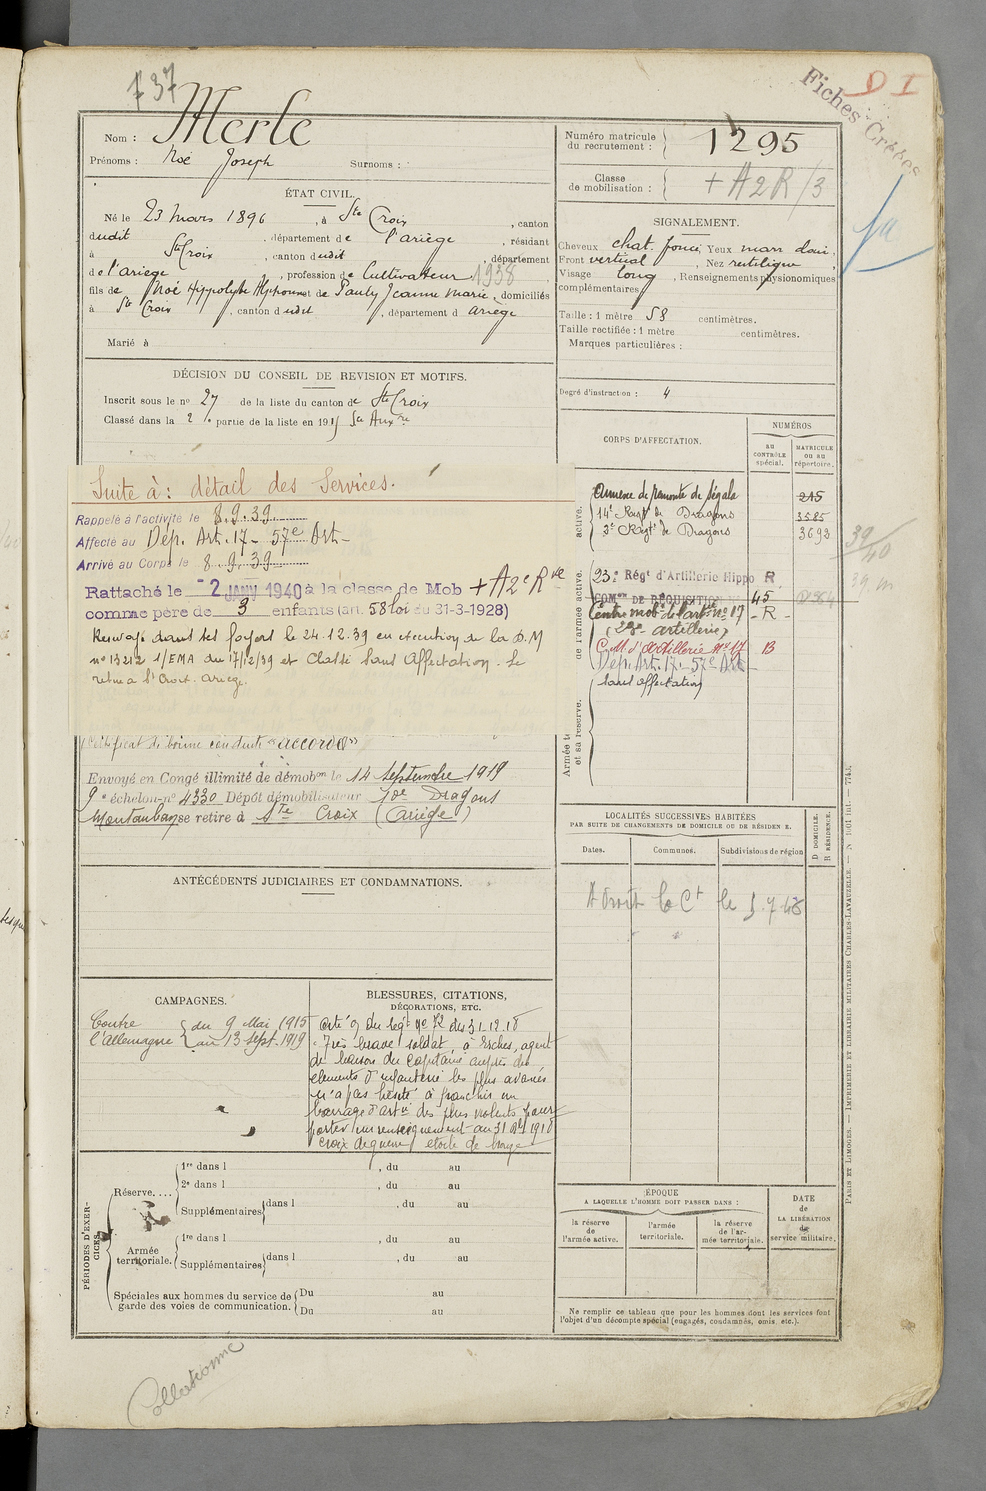 737
Fiches Créées
D I
Nom : Merle
Prénoms : Noé Joseph Surnoms :
ÉTAT CIVIL.
Né le 23 mars 1896, à Ste Croix, canton
dudit, département de l'ariège, résidant
à Ste Croix, canton dudit, département
de l'ariège, profession de Cultivateur 1938
fils de Noé Hippolyte Alphonse et de Pauly Jeanne Marie, domiciliés
à Ste Croix, canton dudit, département d ariège
Marié à
DÉCISION DU CONSEIL DE REVISION ET MOTIFS.
Inscrit sous le no 27 de la liste du canton de Ste Croix
Classé dans la 2 e partie de la liste en 1915 Sce Auxre
Suite à : détail des Services.
Rappelé à l'activité le 8.9.39
Affecté au Dép. Art. 17 - 57e Art -
Arrivé au Corps le 8.9.39
Rattaché le - 2 JANV 1940 à la classe de Mob + A2e Rve
comme père de 3 enfants (art. 58 loi du 31-3-1928)
Renvoyé dans ses foyers le 24.12.39 en exécution de la D.M
no 13212 1/EMA du 17/12/39 et Classé Sans Affectation. Se
retire à Ste Croix. Ariège.
Certificat de bonne conduite "accordé"
Envoyé en Congé illimité de démobon le 14 Septembre 1919
9e échelon-no 4330 Dépôt démobilisateur 10e Dragons
Montauban se retire à Ste Croix (Ariège)
ANTÉCÉDENTS JUDICIAIRES ET CONDAMNATIONS.
CAMPAGNES.
Contre l'Allemagne { du 9 Mai 1915
au 13 Sept. 1919
BLESSURES, CITATIONS,
DÉCORATIONS, ETC.
Cité O/ du Régt no 72 du 31.12.18
"Très brave soldat, à Esches, agent
de liaison du Capitaine auprès des
éléments d'infanterie les plus avancés
n'a pas hésité à franchir un
barrage d'artie des plus violents pour
porter un renseignement au 31 8bre 1918
Croix de guerre étoile de bronze
PÉRIODES D'EXERCICES.
Réserve....
1re dans l , du au
2e dans l , du au
Supplémentaires dans l , du au
Armée territoriale.
1re dans l , du au
Supplémentaires dans l , du au
Spéciales aux hommes du service de garde des voies de communication.
Du au
Du au
Numéro matricule du recrutement : 1295
Classe de mobilisation : + A2R/3
SIGNALEMENT.
Cheveux chat. foncé Yeux marr clair
Front vertical, Nez rectiligne,
Visage long, Renseignements physionomiques
complémentaires
Taille : 1 mètre 58 centimètres.
Taille rectifiée : 1 mètre centimètres.
Marques particulières :
Degré d'instruction : 4
CORPS D'AFFECTATION.
NUMÉROS
au CONTRÔLE spécial.
MATRICULE ou au répertoire.
active.
Annexe de remonte de Ségala 215
14e Rgt de Dragons 3585
3e Rgt de Dragons 3693
39/40
de l'armée active.
23e Régt d'Artillerie Hippo R
COMon DE RÉQUISITION No 45
Centre mobr de l'artie no 17 - R -
(23e artillerie)
C.M. d'artillerie no 17 B
Dép. Art. 17 - 57e Art -
Sans affectation
Armée te
et sa réserve.
LOCALITÉS SUCCESSIVES HABITÉES
PAR SUITE DE CHANGEMENTS DE DOMICILE OU DE RÉSIDENCE.
Dates. Communes. Subdivisions de région
D DOMICILE. R RÉSIDENCE.
A Droit la Ct le 5.7.48
ÉPOQUE
A LAQUELLE L'HOMME DOIT PASSER DANS :
la réserve de l'armée active.
l'armée territoriale.
la réserve de l'armée territoriale.
DATE de LA LIBÉRATION du service militaire.
Ne remplir ce tableau que pour les hommes dont les services font
l'objet d'un décompte spécial (engagés, condamnés, omis, etc.).
PARIS ET LIMOGES. — IMPRIMERIE ET LIBRAIRIE MILITAIRES CHARLES-LAVAUZELLE. — N 1001 Int. — 7743.
Collationné